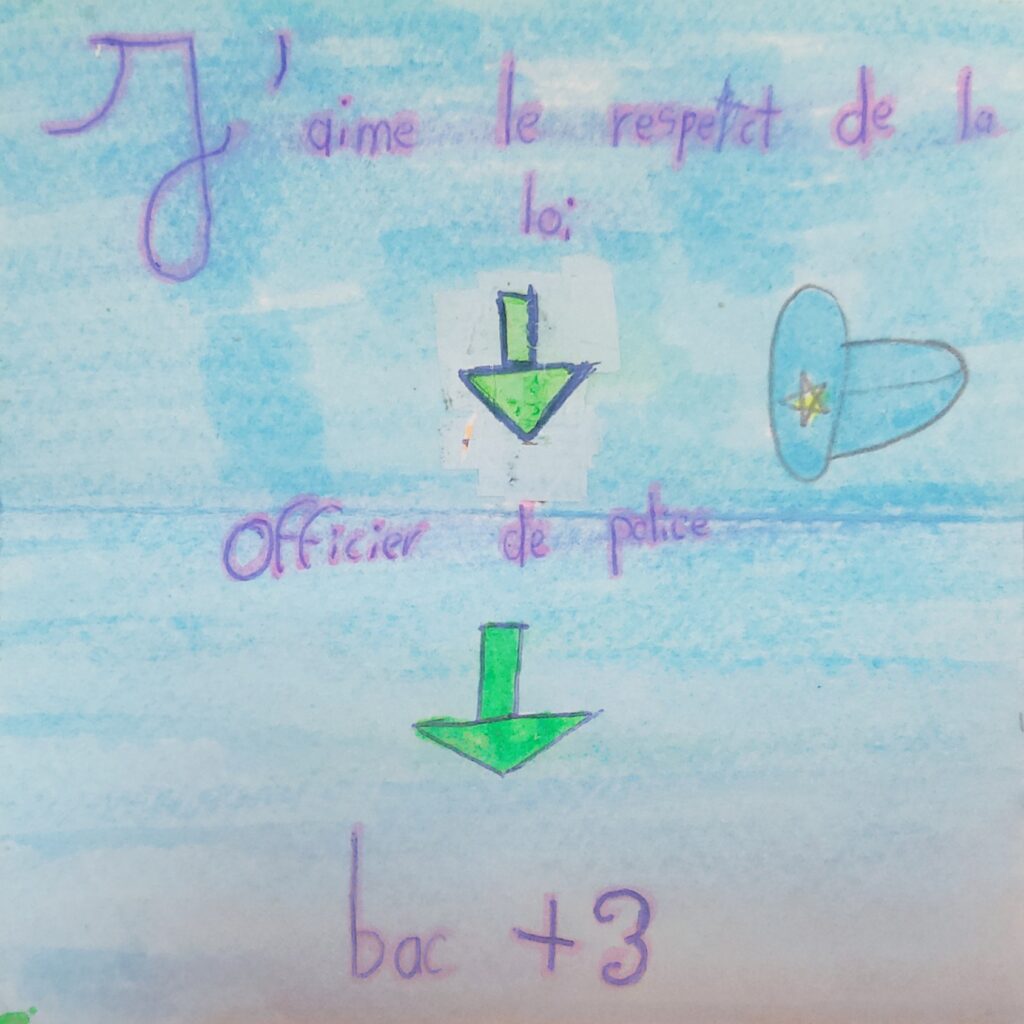 J'aime le respect de la
loi
Officier de police
bac +3